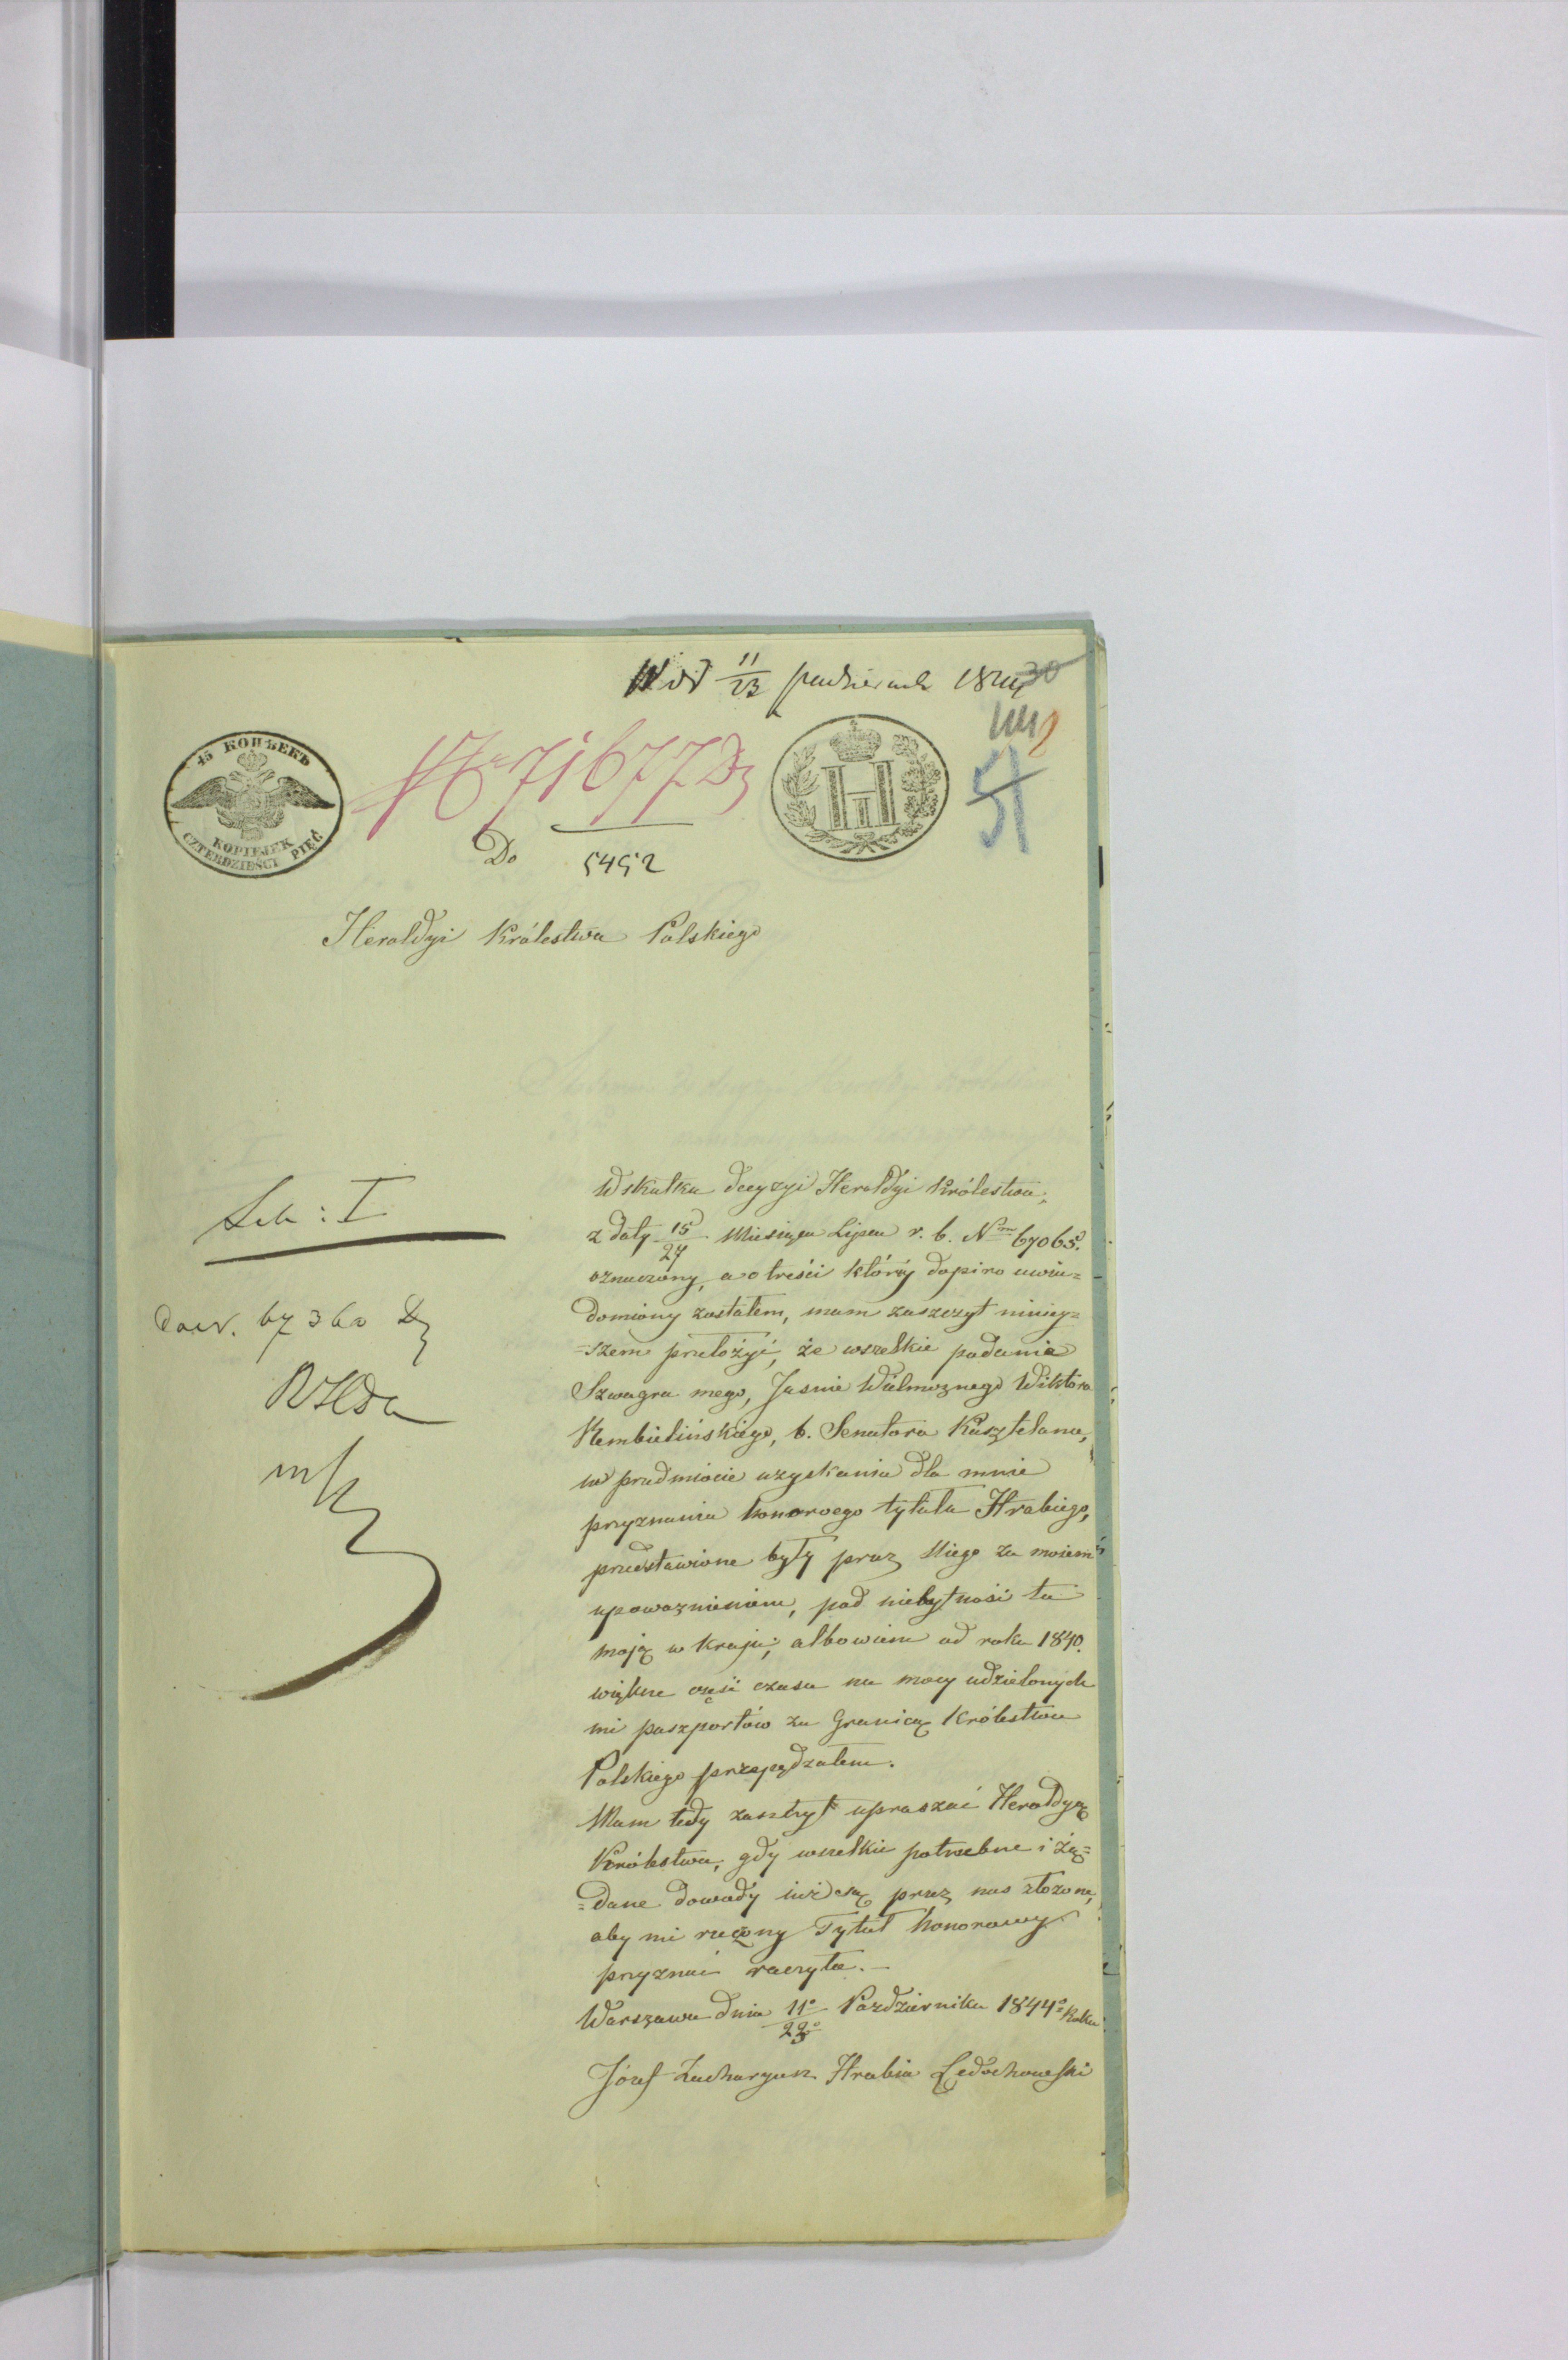 W d 11/23 pazdziernik 1844
30
51
45 КОПѢЕКЪ
KOPIEJEK
CZTERDZIEŚCI PIĘĆ
№ 71677 Dz
H I
Do
5452
Heroldyi Królestwa Polskiego
Sek: I
dow. 67360 Dz
Wskutku decyzyi Heroldyi Królestwa,
z daty 15/27 Miesiąca Lipca r. b. Nrm 67065.
oznaczony, a o treści któréy dopiro uwia=
domiony zostałem, mam zaszczyt niniey=
=szem przełożyć, że wszelkie podania
Szwagra mego, Jasnie Wielmoznego Wiktora
Rembielińskiego, b. Senatora Kasztelana,
w przedmiocie uzyskania dla mnie
przyznania honorwego tytułu Hrabiego,
przedstawione były przez Niego za moiem
upoważnieniem, pod niebytność tu
moją w kraju; albowiem od roku 1840.
większe część czasu na mocy udzielonych
mi paszportów za Granicą Królestwa
Polskiego przepędzałem.
Mam tedy zaszczyt upraszać Heroldyą
Królestwa, gdy wszelkie potrzebne i żą=
=dane dowody iuż są przez nas złożone,
aby mi rzeczony Tytuł honorowy
przyznać raczyła.—
Warszawa dnia 11o/23o Pazdziernika 1844o Roku
Józef Zacharyasz Hrabia Ledochowski